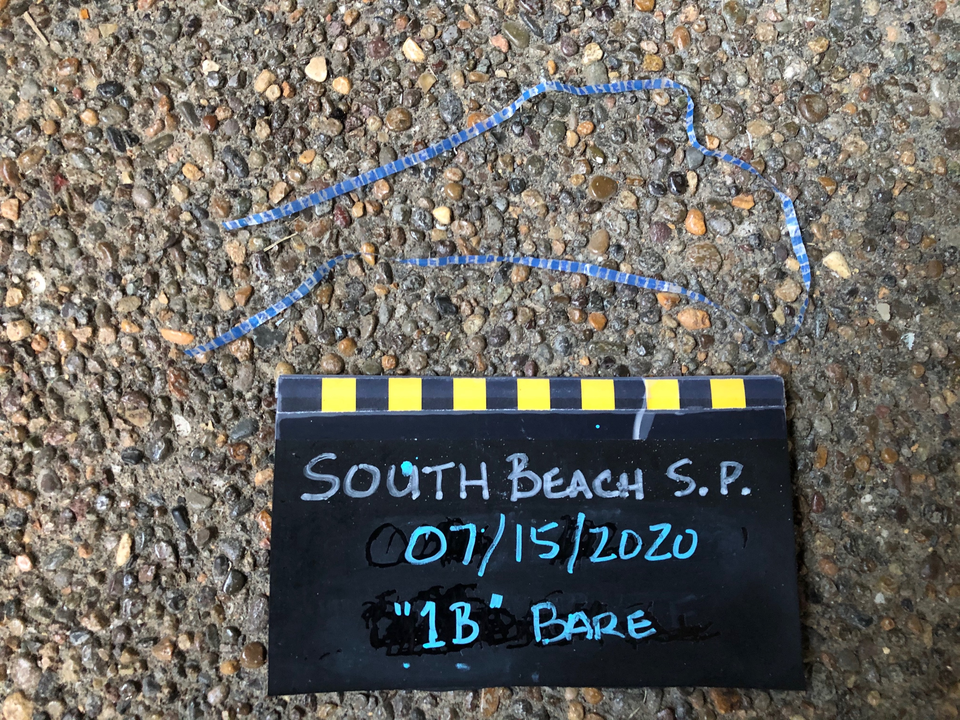 SOUTH BEACH S.P.
07/15/2020
"1B" BARE